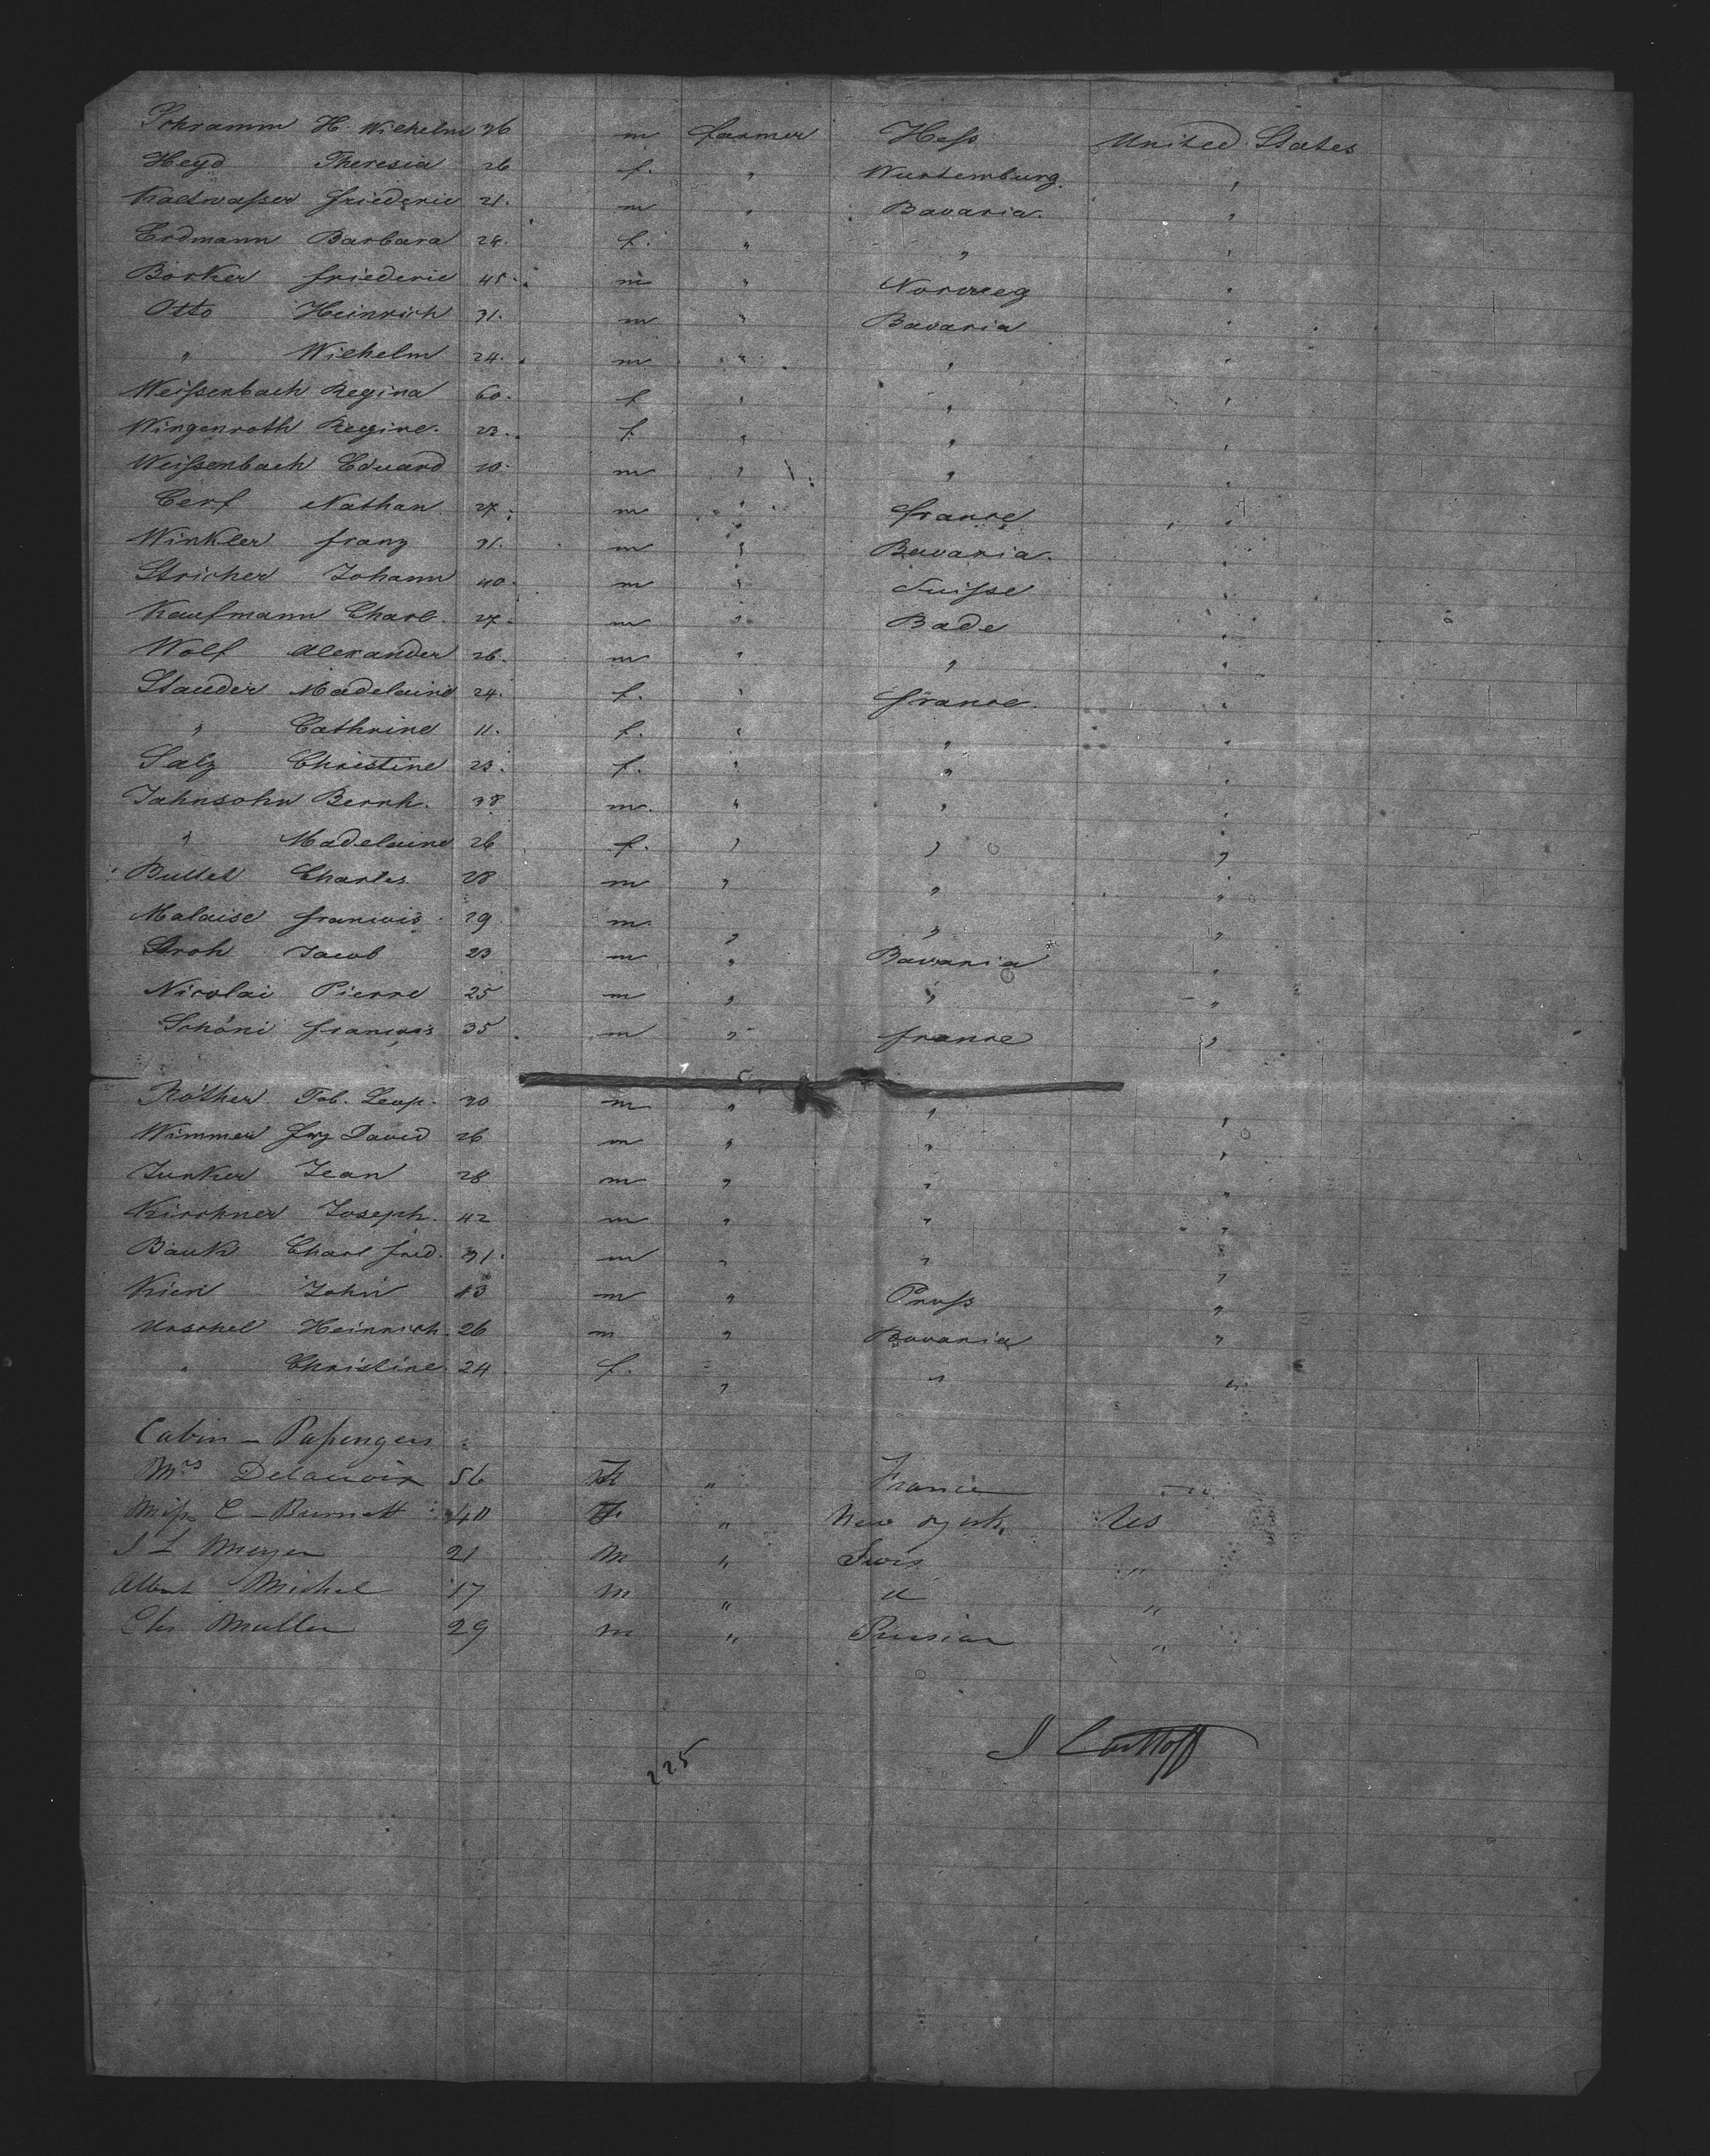 Schramm H. Wilhelm 36 m farmer Hess United States
Heyd Theresia 26 f. " Wurtemburg. "
Kaltwasser Friederic 21. m " Bavaria. "
Erdmann Barbara 28. f. " " "
Börker Friederic 45. m " Norweg "
Otto Heinrich 31. m " Bavaria "
" Wilhelm 24. m " " "
Weissenbach Regina 60. f " " "
Wingenroth Regine. 23. f. " " "
Weissenbach Eduard 10. m " " "
Cerf Nathan 27. m " France "
Winkler Franz 31. m " Bavaria. "
Stricher Johann 40. m " Suisse "
Kaufmann Charl. 27. m " Bade "
Wolf Alexander 26. m " " "
Stauder Madelaine 24. f. " France. "
" Cathrine 11. f. " " "
Salz Christine 23. f. " " "
Jahnsohn Bernh. 38 m. " " "
" Madelaine 26 f. " " "
Buttel Charles. 28 m " " "
Malaise Francois. 29 m. " " "
Stroh Jacob 23 m " Bavaria "
Nicolai Pierre 25 m " " "
Schöni Francois 35 m " France "
Röther Tob. Leop. 30 m " " "
Wimmer Frz David 26 m " " "
Junker Jean 28 m " " "
Kirchner Joseph. 42 m " " "
Bauk Charl Fred. 31. m " " "
Kien John 43 m " Pruss "
Urschel Heinrich. 26 m " Bavaria "
" Christine. 24 f. " " "
Cabin - Passengers
Mrs Delacroix 56 F " France "
Miss C - Burnett 40 F " New York US
J L Meyer 21 M " Swis "
Albert Michel 17 m " d "
Chs Muller 29 m " Prusian "
225